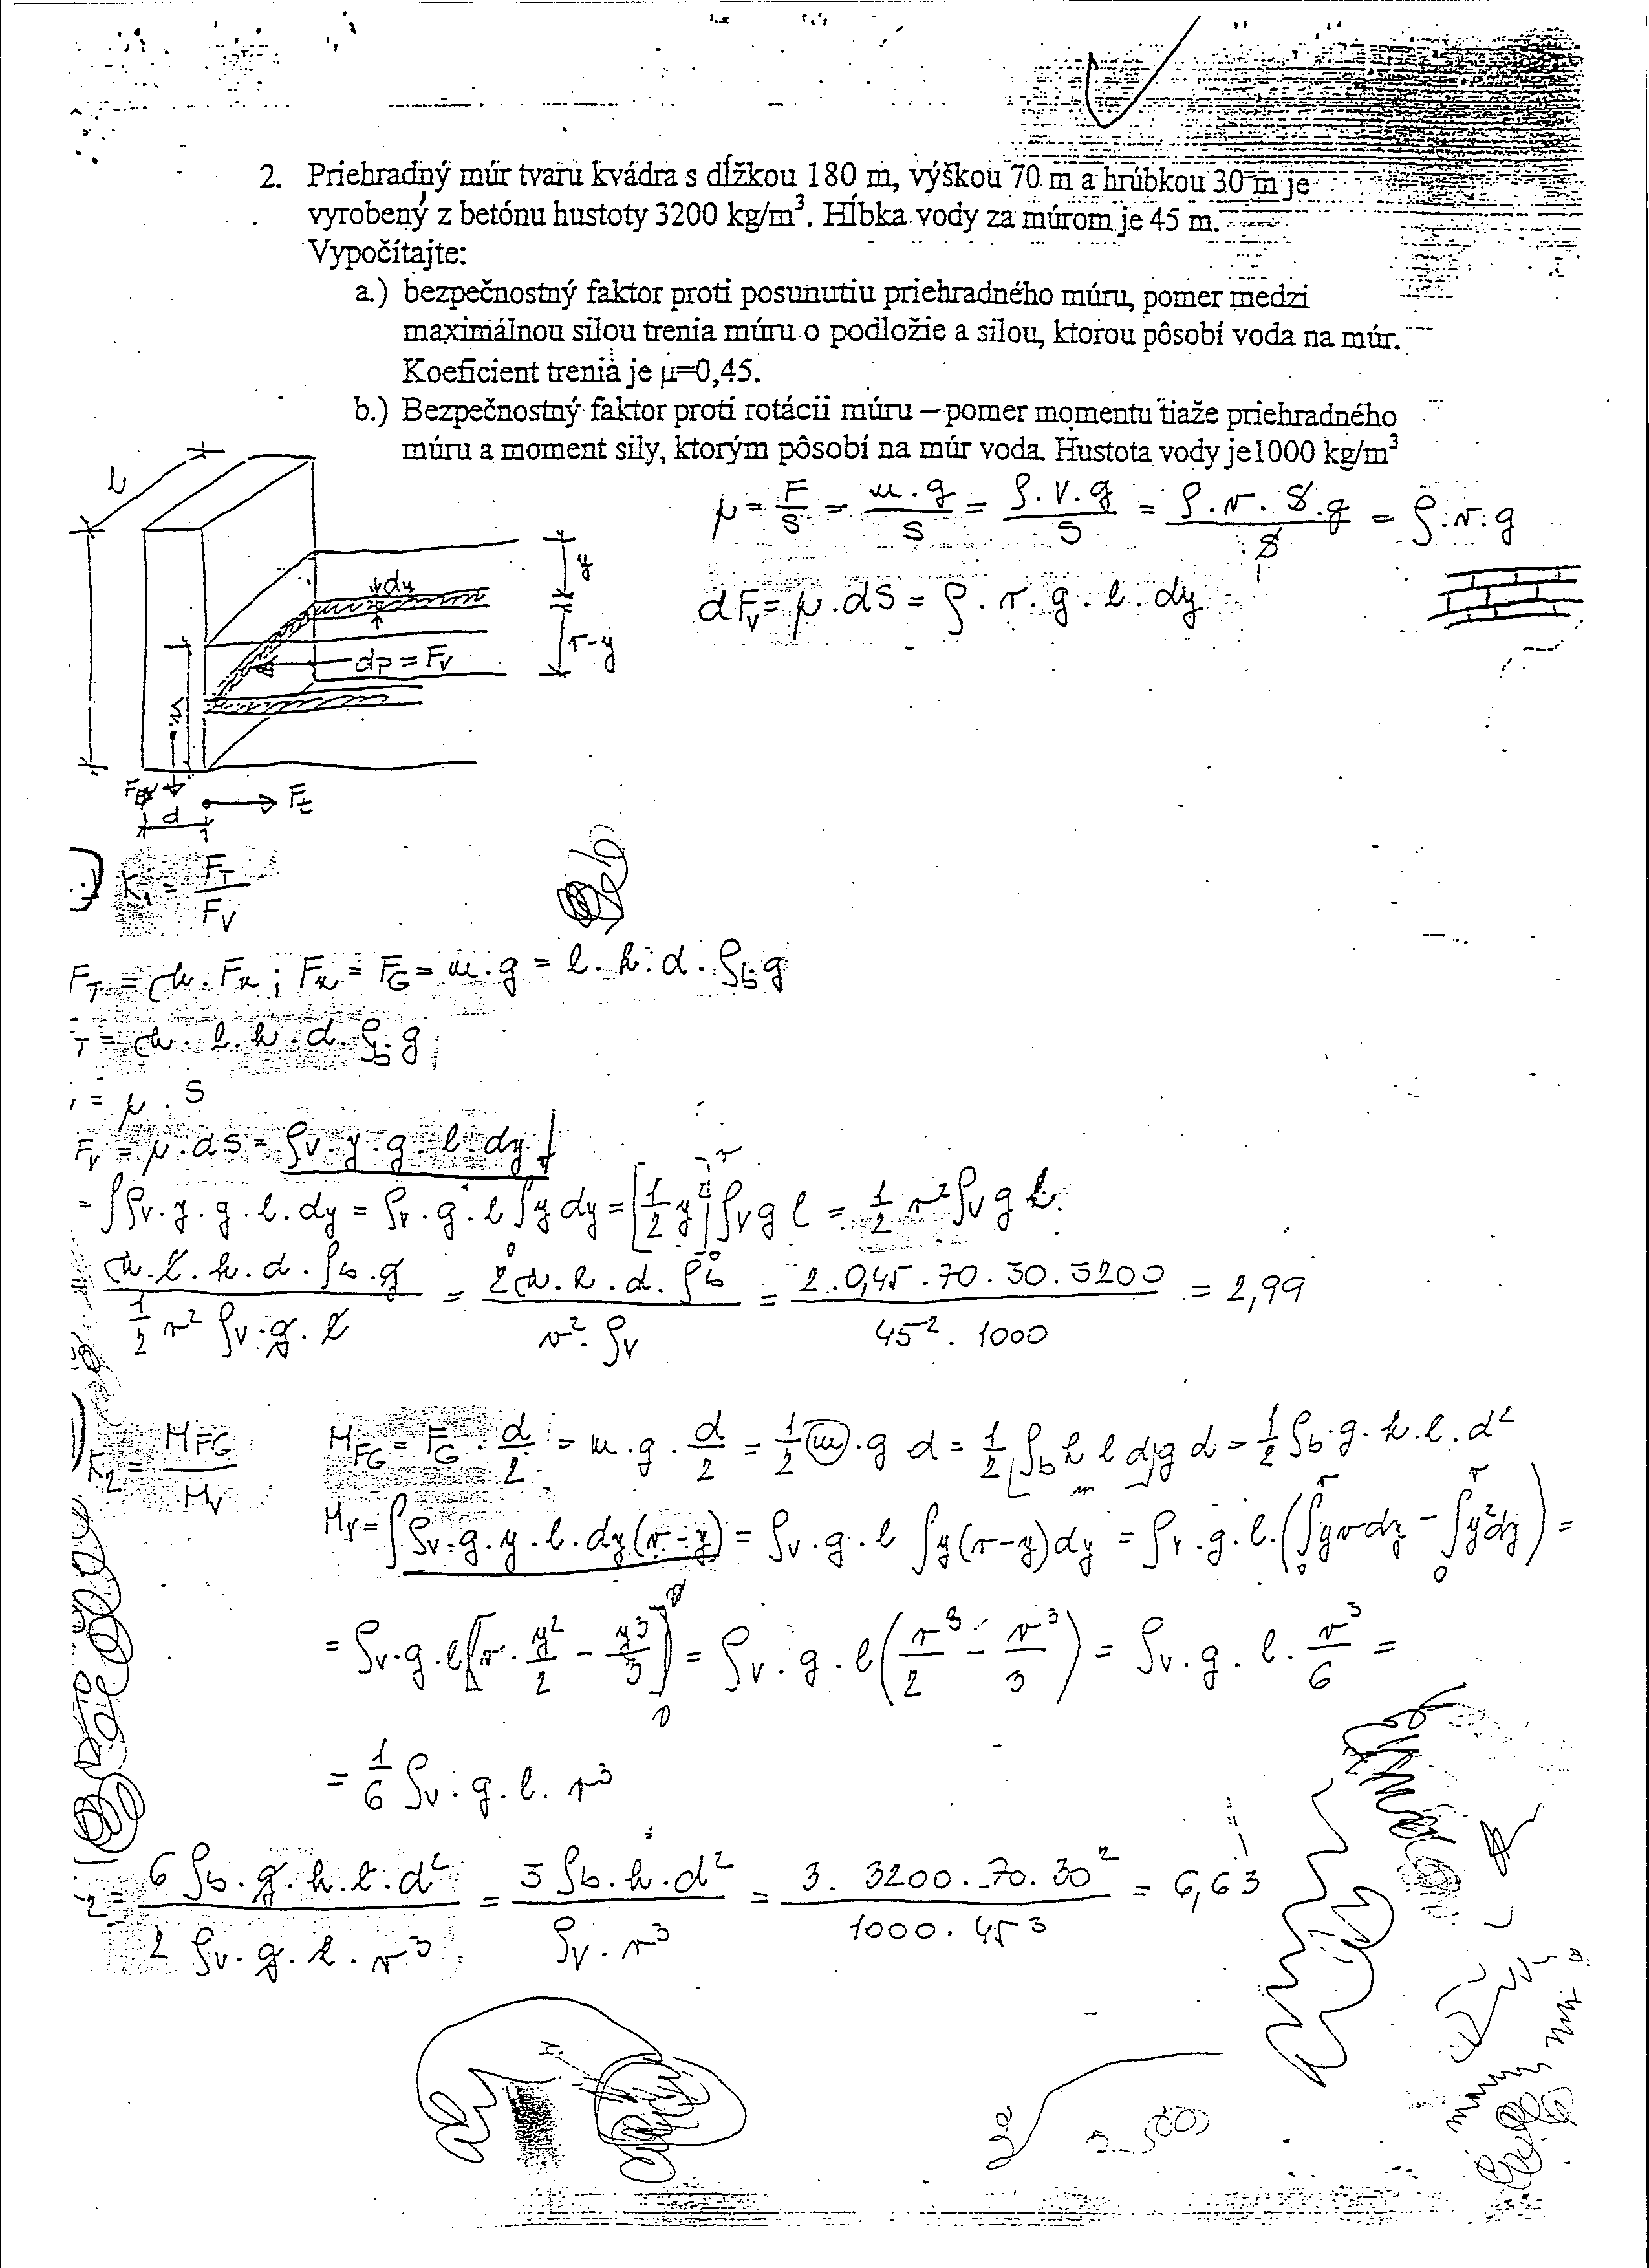 2. Priehradný múr tvaru kvádra s dĺžkou 180 m, výškou 70 m a hrúbkou 30 m je
vyrobený z betónu hustoty 3200 kg/m³. Hĺbka vody za múrom je 45 m.
Vypočítajte:
a.) bezpečnostný faktor proti posunutiu priehradného múru, pomer medzi
maximálnou silou trenia múru o podložie a silou, ktorou pôsobí voda na múr.
Koeficient trenia je µ=0,45.
b.) Bezpečnostný faktor proti rotácii múru – pomer momentu tiaže priehradného
múru a moment sily, ktorým pôsobí na múr voda. Hustota vody je1000 kg/m³
p = F/S = m.g/S = ρ.V.g/S = ρ.v.S.g/S = ρ.v.g
dFv = p.dS = ρ.v.g.l.dy
l
dy
y
v-y
dp = Fv
d
Ft
K₁ = FT/FV
FT = µ.Fn; Fn = FG = m.g = l.h.d.ρb.g
T = µ.l.h.d.ρb.g
= p.S
Fv = p.dS = ρv.y.g.l.dy
= ∫ρv.y.g.l.dy = ρv.g.l ∫y dy = [1/2 y²] ρv g l = 1/2 v² ρv g l
= µ.l.h.d.ρb.g / 1/2 v² ρv.g.l = 2µ.h.d.ρb / v².ρv = 2.0,45.70.30.3200 / 45².1000 = 2,99
K₂ = MFG/Mv MFG = FG.d/2 = m.g.d/2 = 1/2 m.g d = 1/2 ρb h l d g d = 1/2 ρb.g.h.l.d²
Mv = ∫ρv.g.y.l.dy(v-y) = ρv.g.l ∫y(v-y)dy = ρv.g.l.(∫yv dy - ∫y²dy) =
= ρv.g.l[v.y²/2 - y³/3] = ρv.g.l(v³/2 - v³/3) = ρv.g.l.v³/6 =
= 1/6 ρv.g.l.v³
2 = 6ρb.g.h.l.d² / 2ρv.g.l.v³ = 3ρb.h.d² / ρv.v³ = 3.3200.70.30² / 1000.45³ = 6,63